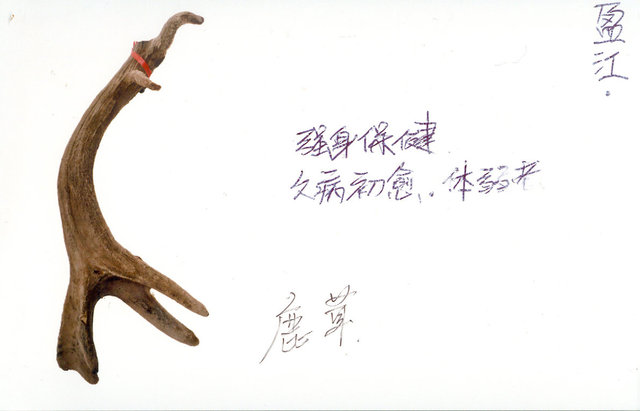 盈江.
强身保健.
久病初愈.体弱者
鹿茸.